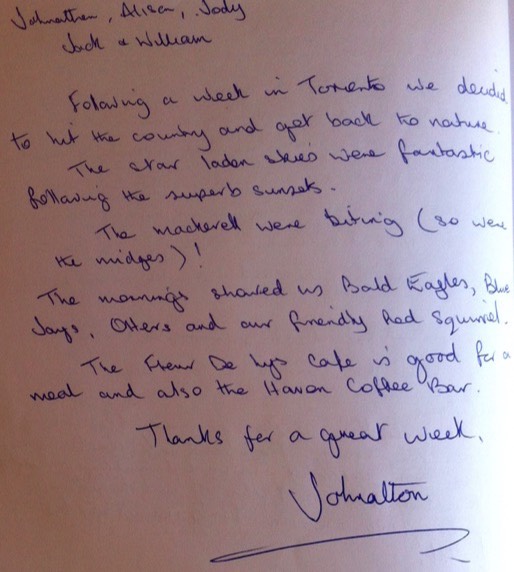 Johnathan, Alison, Jody
Jack & William
Folowing a week in Toronto we decided
to hit the country and get back to nature.
The star laden skies were fantastic
following the superb sunsets.
The mackerell were biting (so were
the midges)!
The mornings shared us Bald Eagles, Blue
Jays, Otters and our friendly Red Squirrel.
The Fleur De Lys cafe is good for a
meal and also the Haven Coffee Bar.
Thanks for a great week.
Johnalton